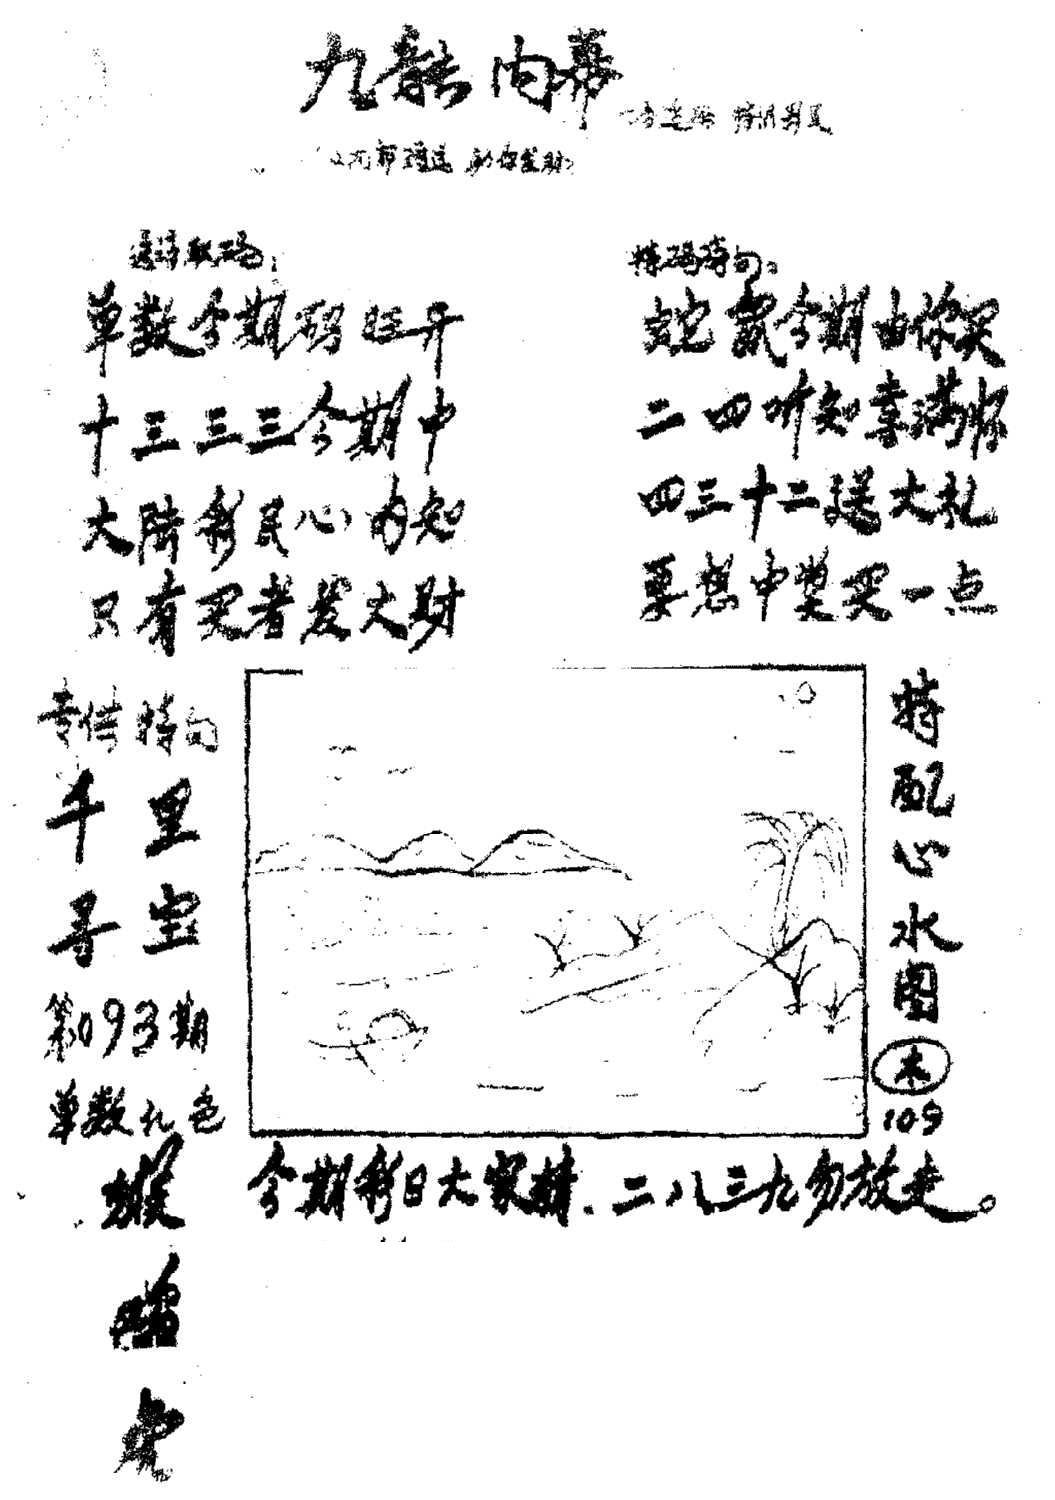 九龍内幕
特码诗句。
单数今期码旺开
十三三三今期中
大陆彩民心内知
只有买者发大财
蛇鼠今期由你买
二四听知喜满怀
四三十二送大礼
要想中奖买一点
专供特句
千里
寻宝
第093期
单数礼色
猴
特配心水图
木
109
今期彩日大家精.二八三九勿放走。